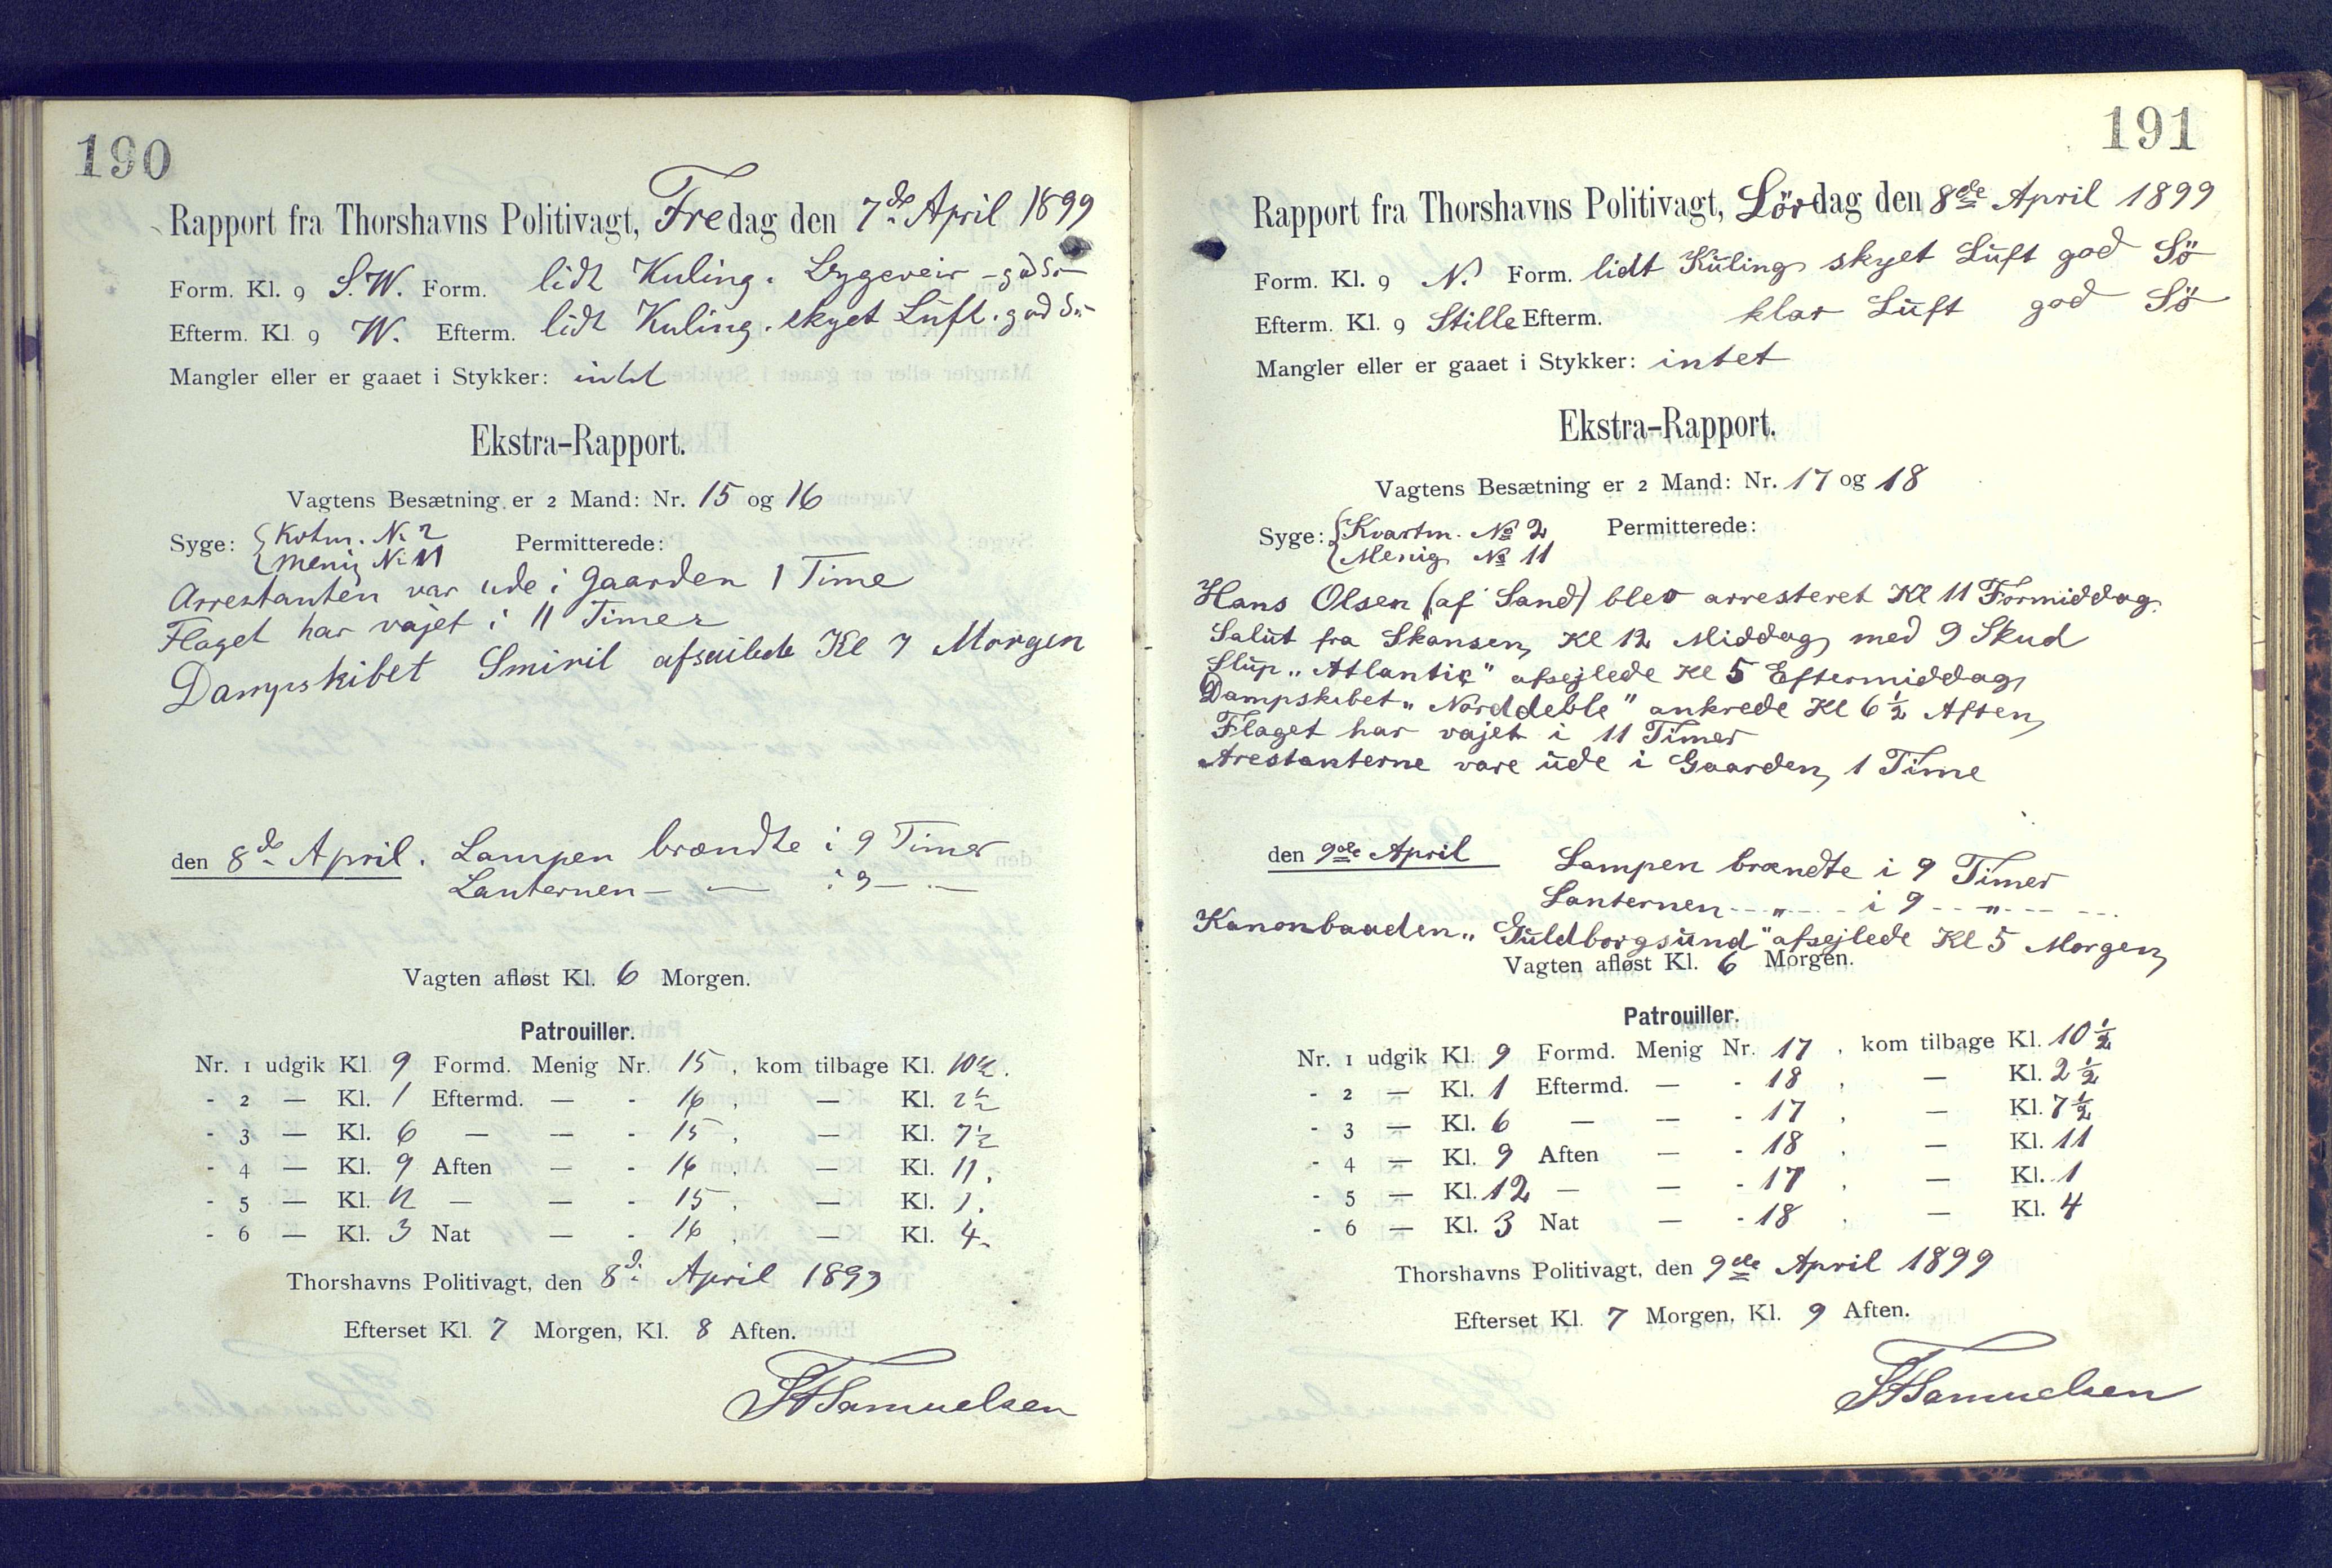 190
Rapport fra Thorshavns Politivagt, Fredag den 7de April 1899
Form. Kl. 9 S.W. Form. lidt Kuling. Bygeveir - god Sö
Efterm. Kl. 9 W. Efterm. lidt Kuling. skyet Luft. god Sö
Mangler eller er gaaet i Stykker: intet
Ekstra-Rapport.
Vagtens Besætning er 2 Mand: Nr. 15 og 16
Syge: { Kvtm. No 2 Permitterede:
{ Menig No 11
Arrestanten var ude i Gaarden 1 Time
Flaget har vajet i 11 Timer
Dampskibet Smiril afseilede Kl 7 Morgen
den 8de April. Lampen brændte i 9 Timer
Lanternen — — i 9 — . —
Vagten afløst Kl. 6 Morgen.
Patrouiller.
Nr. 1 udgik Kl. 9 Formd. Menig Nr. 15, kom tilbage Kl. 10½.
- 2 — Kl. 1 Eftermd. — - 16, — Kl. 2½
- 3 — Kl. 6 — — - 15, — Kl. 7½
- 4 — Kl. 9 Aften — - 16, — Kl. 11.
- 5 — Kl. 12 — — - 15, — Kl. 1.
- 6 — Kl. 3 Nat — - 16, — Kl. 4.
Thorshavns Politivagt, den 8de April 1899
Efterset Kl. 7 Morgen, Kl. 8 Aften.
Samuelsen
191
Rapport fra Thorshavns Politivagt, Lördag den 8de April 1899
Form. Kl. 9 N. Form. lidt Kuling skyet Luft god Sö
Efterm. Kl. 9 Stille Efterm. klar Luft god Sö
Mangler eller er gaaet i Stykker: intet
Ekstra-Rapport.
Vagtens Besætning er 2 Mand: Nr. 17 og 18
Syge: { Kvartm. No 2 Permitterede:
{ Menig No 11
Hans Olsen (af Sand) blev arresteret Kl 11 Formiddag.
Salut fra Skansen, Kl 12 Middag, med 9 Skud
Slup „Atlantic" afsejlede Kl 5 Eftermiddag,
Dampskibet „Norddeble" ankrede Kl 6½ Aften,
Flaget har vajet i 11 Timer
Arestanterne vare ude i Gaarden, 1 Time
den 9de April Lampen brændte i 9 Timer
Lanternen - - „ - - i 9 - - „ - - -
Kanonbaaden „Guldborgsund" afsejlede Kl 5 Morgen,
Vagten afløst Kl. 6 Morgen.
Patrouiller.
Nr. 1 udgik Kl. 9 Formd. Menig Nr. 17, kom tilbage Kl. 10½
- 2 — Kl. 1 Eftermd. — - 18, — Kl. 2½
- 3 — Kl. 6 — — - 17, — Kl. 7½
- 4 — Kl. 9 Aften — - 18, — Kl. 11
- 5 — Kl. 12 — — - 17, — Kl. 1
- 6 — Kl. 3 Nat — - 18, — Kl. 4
Thorshavns Politivagt, den 9de April 1899
Efterset Kl. 7 Morgen, Kl. 9 Aften.
Samuelsen